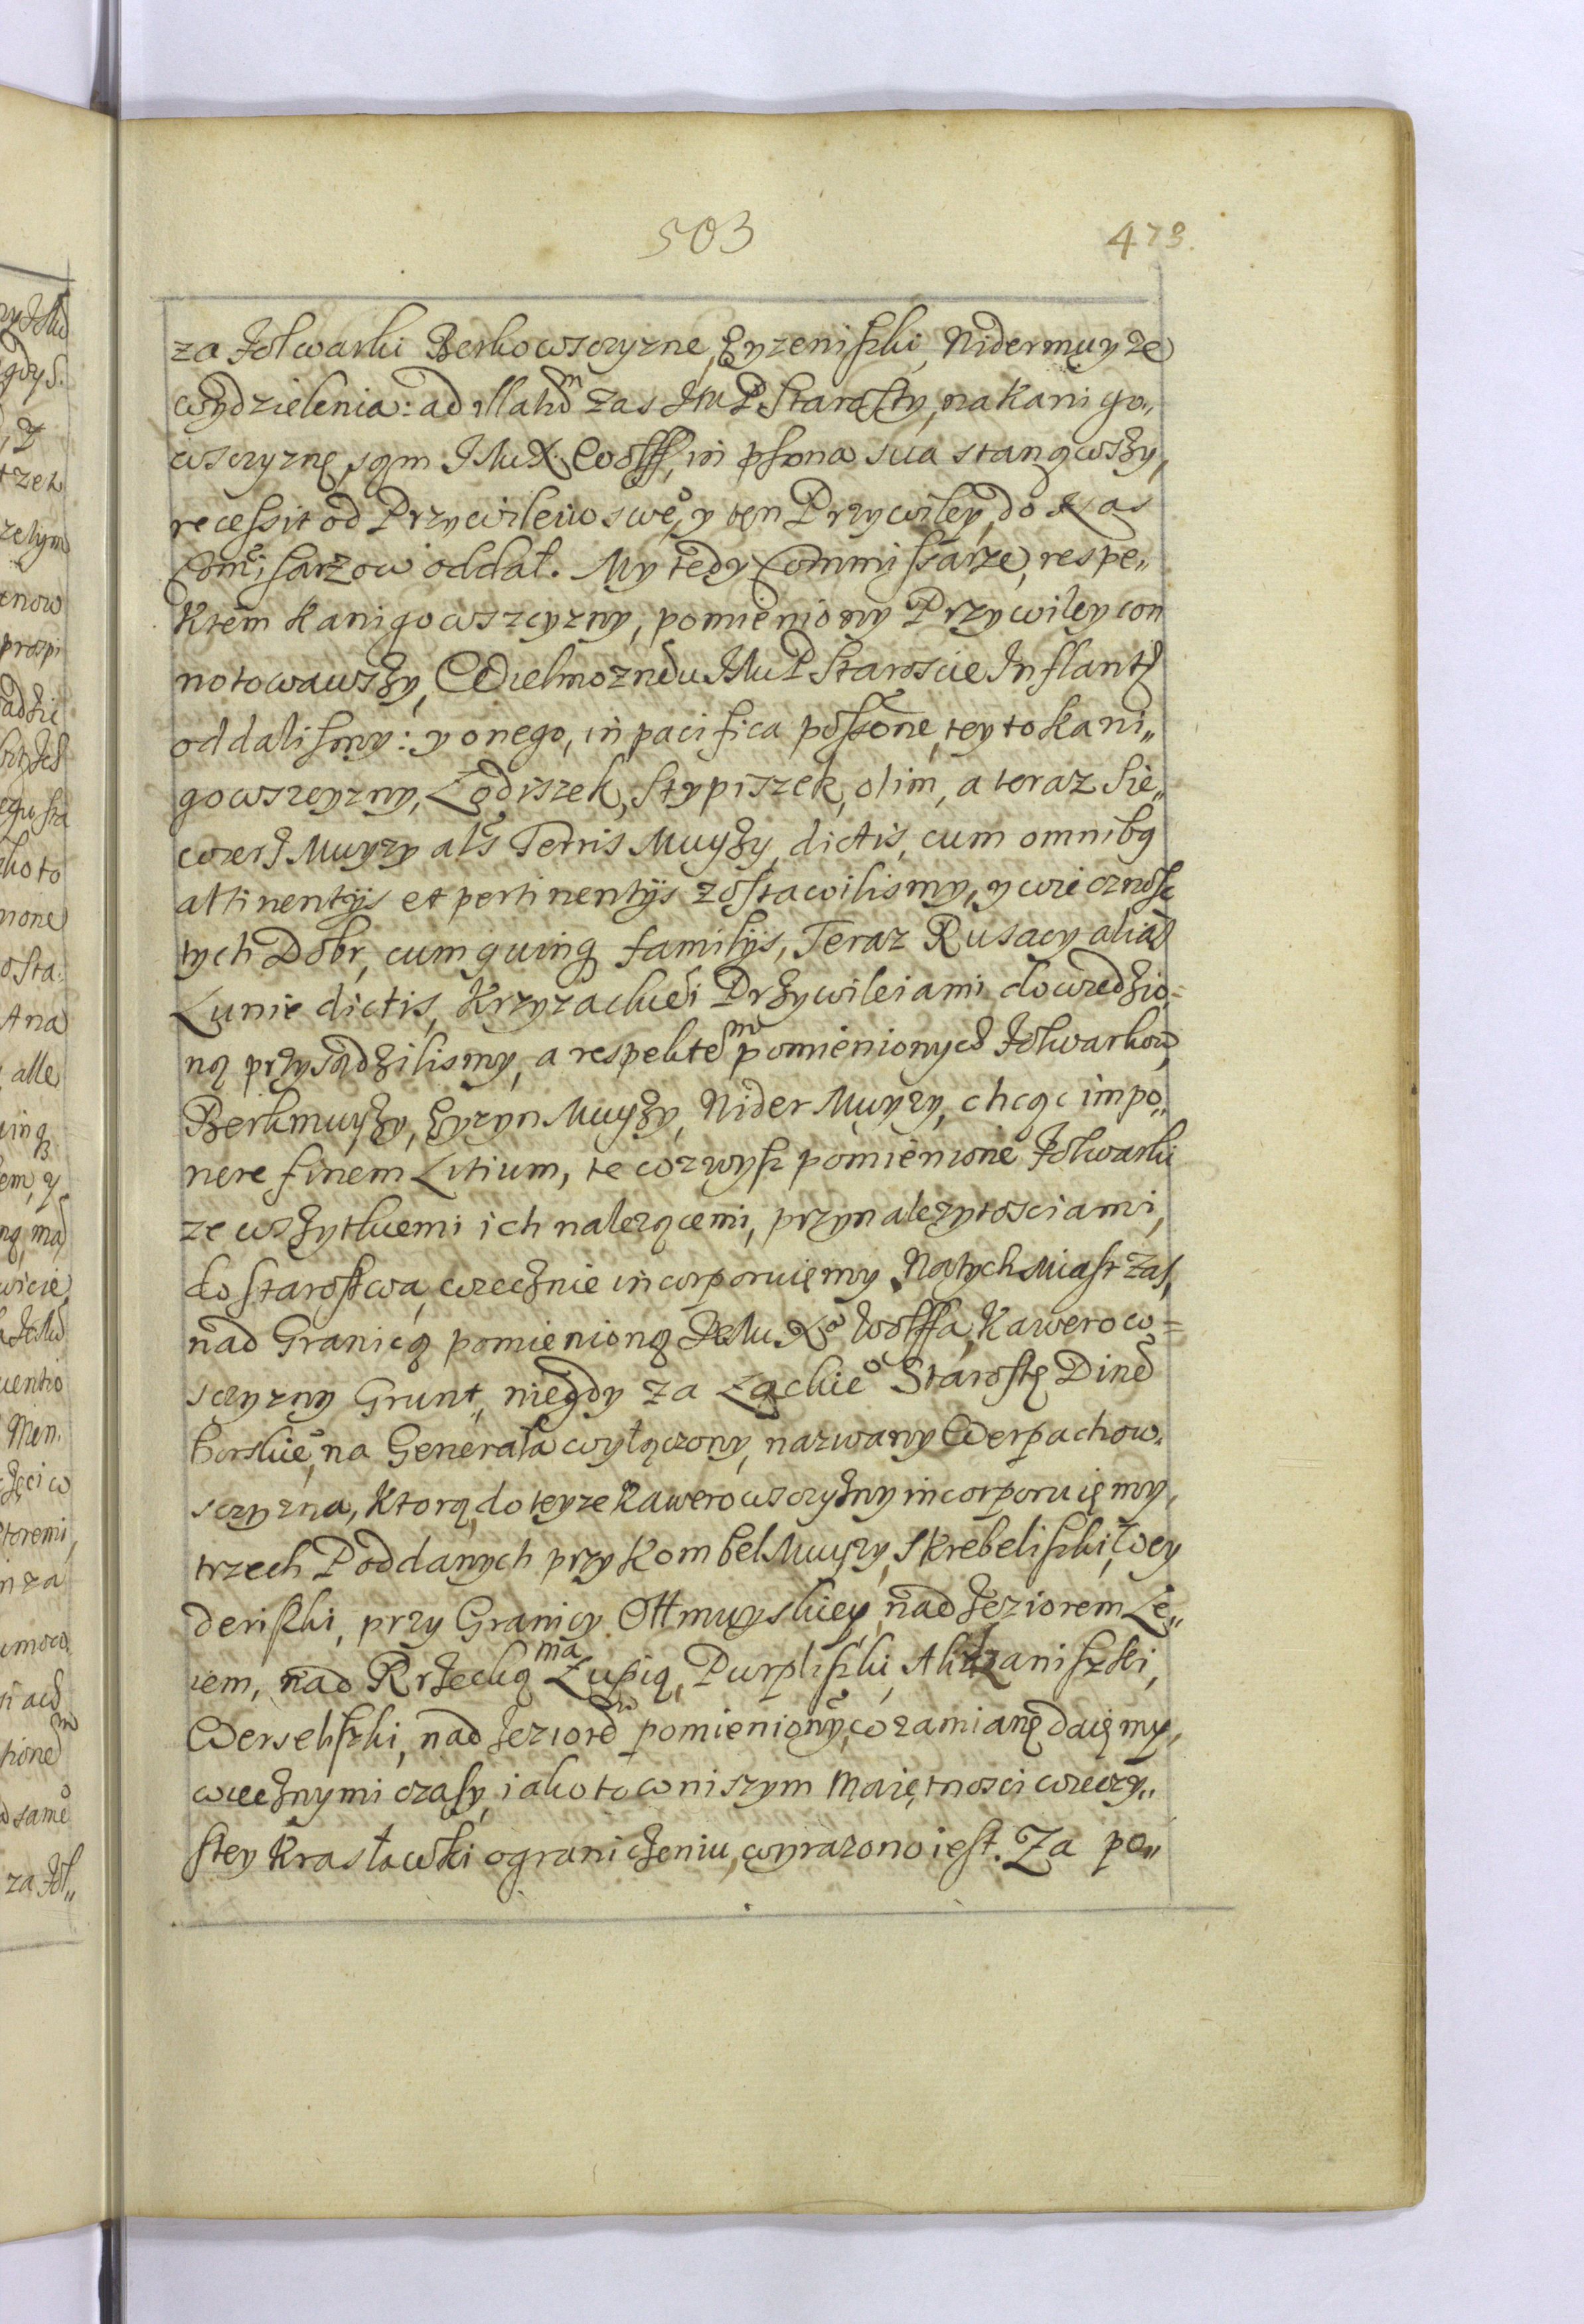 503
473.
za Folwarki Berkowsczyzne, Eyzeniszki, Nidermuyze
wydzielenia: ad illatũ zas JMP. Starosty, na Kanigo„
wsczyznę sąm JMX. Wolff, in psona sua stanąwszy,
recessit od Przywileiu swe͠, y ten Przywiley, do Nas
Com͠isarzow oddał. My tedy Commissarze, respe„
ktem Kanigowszczyzny, pomieniony Przywiley con
notowawszy, Wielmoznẽu JMP Staroscie Inflantẽ
oddalismy: y onego, in pacifica possõne, tey to Kani„
gowszczyzny, Lodiszek, Stypiszek, olim, a teraz Sie„
wers Muyzy als Tetris Muyzy, dictis, cum omnibq
attinentijs et pertinentijs zostawilismy, y wiecznosc
tych Dobr, cum quinq familijs, Teraz Rusacy alias
Lunie dictis, Krzyzackiẽi Przywileiami dowiedzio=
ną przysądzilismy, a respektem pomienionych Folwarkow,
Berkmuyzy, Eyzyn Muyzy, Nider Muyzy, chcąc impo„
nere finem Litium, te wzwysz pomienione Folwarki
ze wszytkiemi ich nalezącemi, przynalezytosciami,
do Starostwa, wiecznie incorporuięmy. Natych Miast zas,
nad Granicą pomienioną JeMu Xa Wolffa, Kawerow=
sczyzny Grunt, niegdy za Łąckie͠ Starostę Dinẽ
borskie͠, na Generała wyłączony, nazwany Werpachow„
sczyzna, Ktorą do teyze Kawerowsczyzny incorporuięmy,
trzech Poddanych przy Kombel Muyzy, Skrebeliszki, Wey
deriszki, przy Granicy Ottmuyskiey, nad Jeziorem Le„
iem, nad Rzeczką Łupią, Purpliszki,
Werseliszki, nad Jeziorẽ pomienionỹ, w zamianę daięmy,
wiecznymi czasy, iako to w niszym Maiętnosci wieczy„
stey Krasławski ograniczeniu, wyrazono iest. Za po„